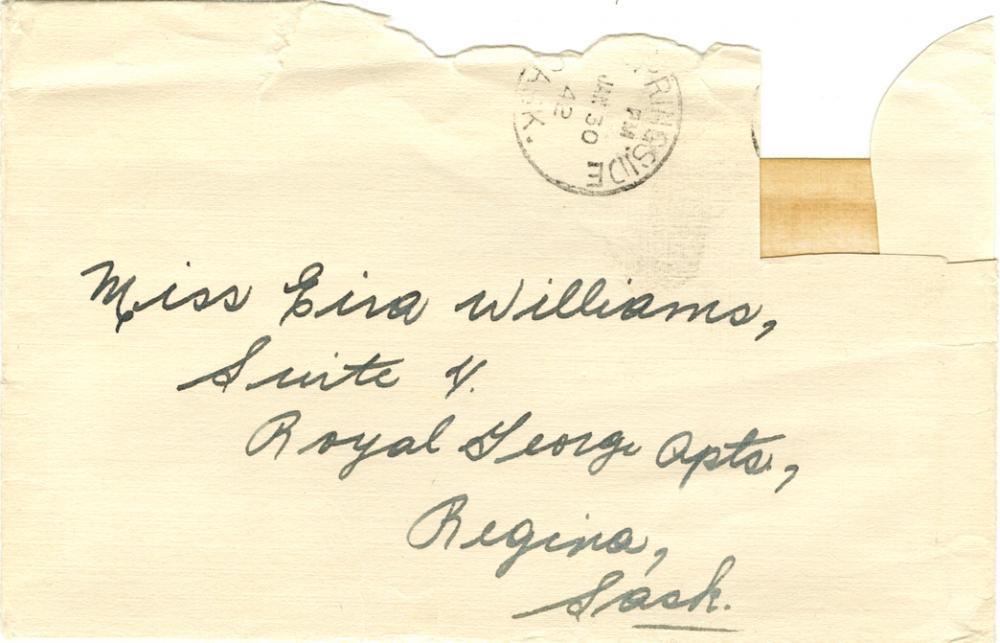 SPRINGSIDE
PM
JAN 30
42
SASK.
Miss Eira Williams,
Suite 4.
Royal George Apts.,
Regina,
Sask.